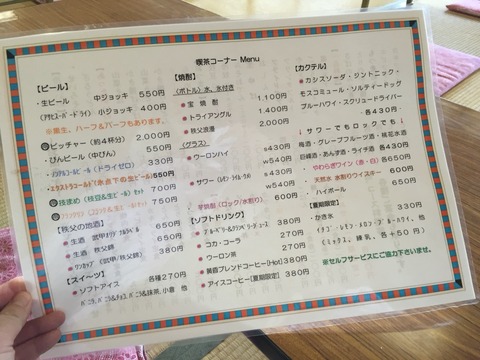 喫茶コーナー Menu
【ビール】
・生ビール 中ジョッキ 550円
(アサヒスーパードライ) 小ジョッキ 400円
※黒生、ハーフ&ハーフもあります。
ピッチャー(約4杯分) 2,000円
・びんビール(中びん) 550円
・ノンアルコールビール(ドライゼロ) 330円
・エクストラコールド「氷点下の生ビール」550円
枝まめ(枝豆&生ビール)セット 700円
750円
【秩父の地酒】
・生酒 650円
・生酒 秩父錦 650円
・ワンカップ(武甲/秩父錦) 380円
【スイーツ】
・ソフトアイス 各種270円
バニラ、バニラ&チョコ、バニラ&抹茶、小倉 他
【焼酎】
(ボトル)水、氷付き
・宝焼酎 1,100円
・トライアングル 1,400円
・秩父浪漫 2,000円
(グラス)
・ウーロンハイ s430円
w540円
・サワー(レモン・ライム・ウメ) s430円
w540円
・芋焼酎(ロック/水割り) 600円
【ソフトドリンク】
380円
・コカ・コーラ 270円
・ウーロン茶 270円
・黄色ブレンドコーヒー(Hot) 380円
・アイスコーヒー(夏期限定) 380円
【カクテル】
・カシスソーダ・ジントニック・
モスコミュール・ソルティードッグ
ブルーハワイ・スクリュードライバー
・各430円・
↓ サワーでもロックでも ↓
梅酒・グレープフルーツ酒・桃花水酒
巨峰酒・あんず酒・ライチ酒 各430円
・やわらぎワイン(赤・白) 各650円
・天然水 水割りウイスキー 600円
・ハイボール 650円
【夏期限定】
・かき氷 330円
(イチゴ・レモン・メロン・ブルーハワイ、他
(ミックス、練乳、各+50円)
※セルフサービスにご協力下さいませ。